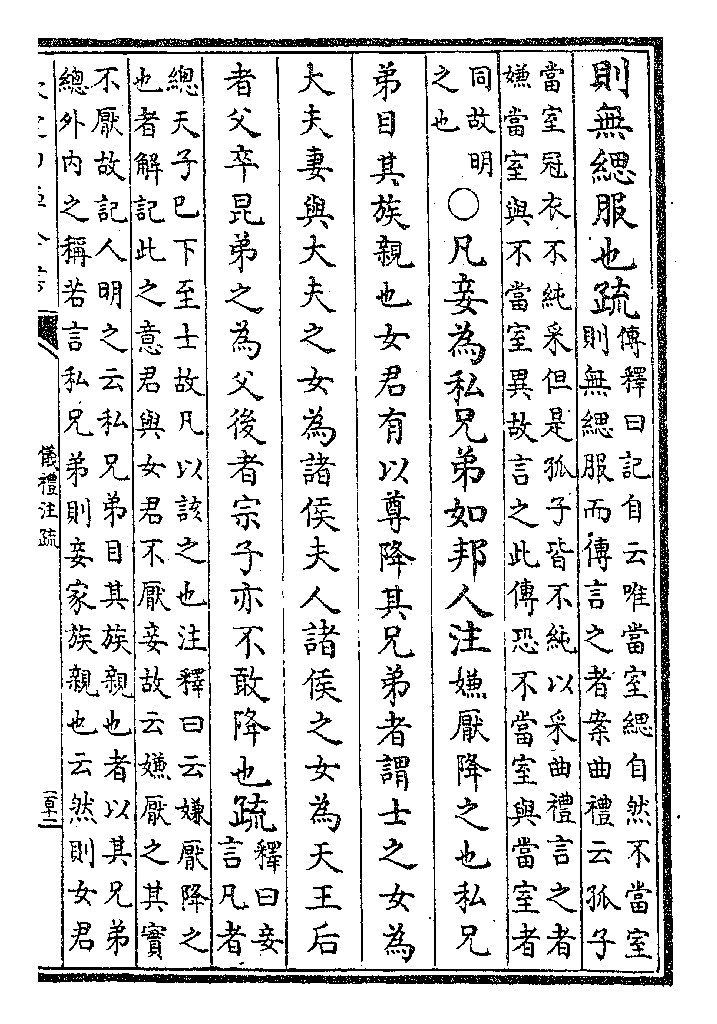 則無緦服也疏
傳釋曰記自云唯當室緦自然不當室
則無緦服而傳言之者案曲禮云孤子
當室冠衣不純采但是孤子皆不純以采曲禮言之者
嫌當室與不當室異故言之此傳恐不當室與當室者
同故明
之也
○凡妾為私兄弟如邦人注嫌厭降之也私兄
弟目其族親也女君有以尊降其兄弟者謂士之女為
大夫妻與大夫之女為諸侯夫人諸侯之女為天王后
者父卒昆弟之為父後者宗子亦不敢降也疏
釋曰妾
言凡者
總天子巳下至士故凡以該之也注釋曰云嫌厭降之
也者解記此之意君與女君不厭妾故云嫌厭之其實
不厭故記人明之云私兄弟目其族親也者以其兄弟
總外内之稱若言私兄弟則妾家族親也云然則女君
儀禮注疏